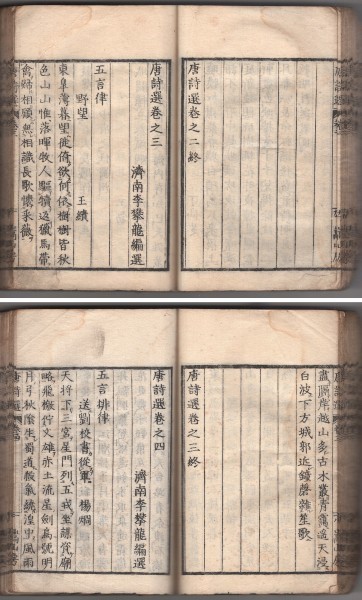 唐詩選卷之二終
唐詩選卷之三
濟南李攀龍編選
五言律
野望 王績
東皐薄暮望徙倚欲何依樹樹皆秋
色山山惟落暉牧人驅犢返獵馬帶
禽歸相顧無相識長歌懷采薇
盡隔岸越山多古木叢青靄遙天浸
白波下方城郭近鐘磬雜笙歌
唐詩選卷之三終
唐詩選卷之四
濟南李攀龍編選
五言排律
送劉校書從軍 楊炯
天將下三宮星門列五戎坐謀資廟
略飛檄佇文雄赤土流星劍烏號明
月弓秋陰生蜀道殺氣繞湟中風雨